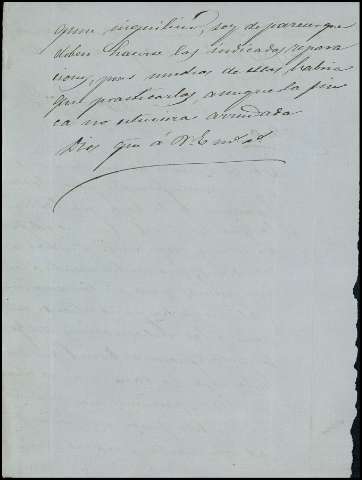 quier inquilino, soy de parecer que
deben hacerse las indicadas repara
ciones, pues muchas de ellas habria
que practicarlas, aunque la fin
ca no estuviera arrendada
Dios gue á V.E. ms. as.